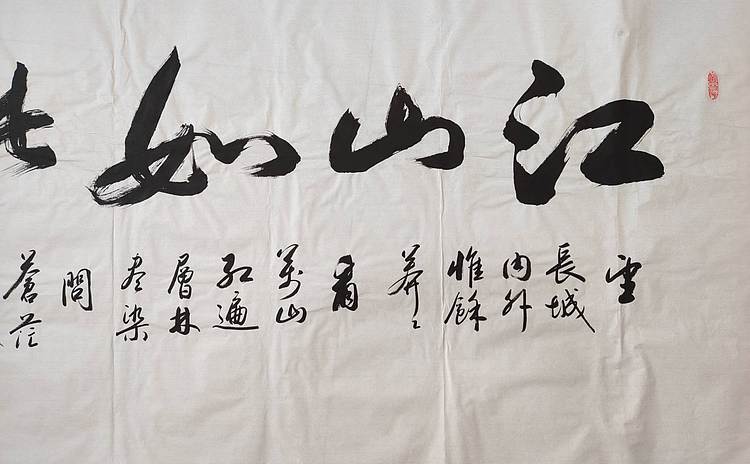 江山如
望
長城
内外
惟餘
莽〻
看
萬山
红遍
層林
尽染
問
蒼茫